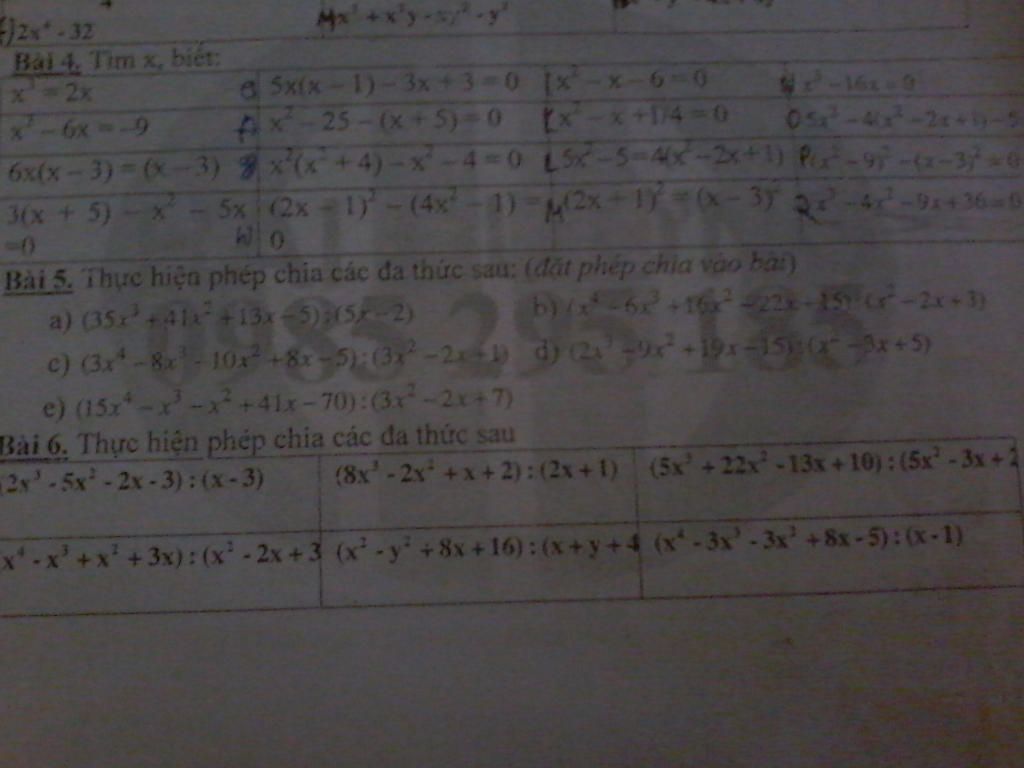 2x⁴ - 32 x³ + x²y - xy² - y³
Bài 4. Tìm x, biết:
x³ = 2x 5x(x − 1) − 3x + 3 = 0 I x² − x − 6 = 0 N x³ − 16x = 0
x² − 6x = −9 x² − 25 − (x + 5) = 0 K x² − x + 1/4 = 0 O 5x² − 4(x² − 2x + 1) − 5
6x(x − 3) = (x − 3) x²(x² + 4) − x² − 4 = 0 L 5x² − 5 = 4(x² − 2x + 1) P (x² − 9)² − (x − 3)² = 0
3(x + 5) − x² − 5x (2x − 1)² − (4x² − 1) = M (2x + 1)² = (x − 3)² Q x³ − 4x² − 9x + 36 = 0
=0 0
Bài 5. Thực hiện phép chia các đa thức sau: (đặt phép chia vào bài)
0985 295 185
a) (35x³ + 41x² + 13x − 5) : (5x − 2) b) (x⁴ − 6x³ + 16x² − 22x − 15) : (x² − 2x + 3)
c) (3x⁴ − 8x³ − 10x² + 8x − 5) : (3x² − 2x + 1) d) (2x³ − 9x² + 19x − 15) : (x² − 3x + 5)
e) (15x⁴ − x³ − x² + 41x − 70) : (3x² − 2x + 7)
Bài 6. Thực hiện phép chia các đa thức sau
(2x³ - 5x² - 2x - 3) : (x - 3) (8x³ - 2x² + x + 2) : (2x + 1) (5x³ + 22x² - 13x + 10) : (5x² - 3x + 2
x⁴ - x³ + x² + 3x) : (x² - 2x + 3 (x² - y² + 8x + 16) : (x + y + 4 (x⁴ - 3x³ - 3x² + 8x - 5) : (x - 1)